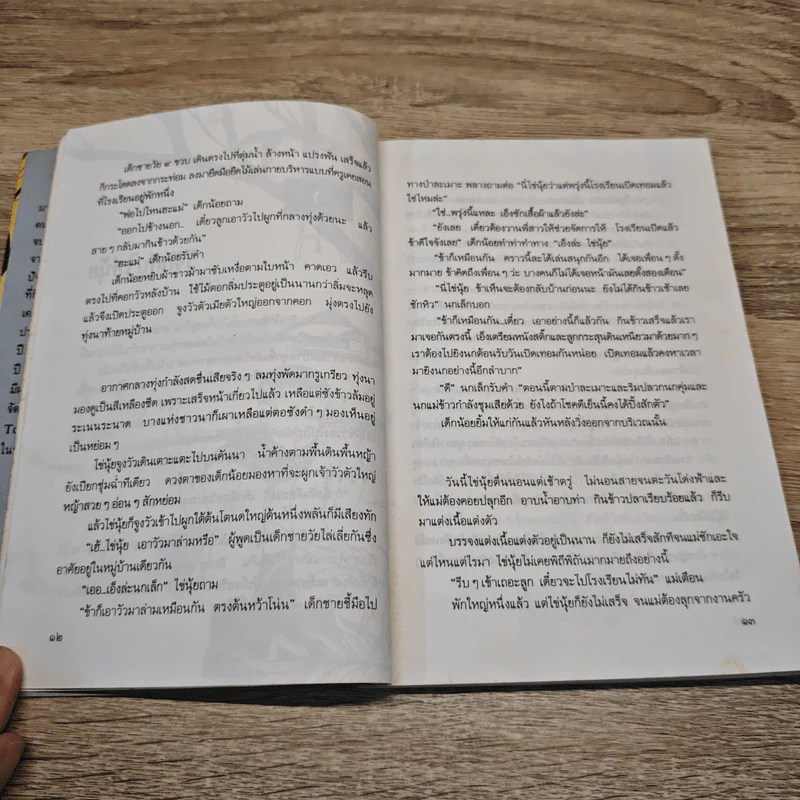 เด็กชายวัย ๙ ขวบ เดินตรงไปที่ตุ่มน้ำ ล้างหน้า แปรงฟัน เสร็จแล้ว
ก็กระโดดลงจากกระท่อม ลงมายืดมือยืดไม้เล่นกายบริหารแบบที่ครูเคยสอน
ที่โรงเรียนอยู่พักหนึ่ง
"พ่อไปไหนฮะแม่" เด็กน้อยถาม
"ออกไปข้างนอก... เดี๋ยวลูกเอาวัวไปผูกที่กลางทุ่งด้วยนะ แล้ว
สาย ๆ กลับมากินข้าวด้วยกัน"
"ฮะแม่" เด็กน้อยรับคำ
เด็กน้อยหยิบผ้าขาวม้ามาซับเหงื่อตามใบหน้า คาดเอว แล้วรีบ
ตรงไปที่คอกวัวหลังบ้าน ใช้ไม้ตอกลิ่มประตูอยู่เป็นนานกว่าลิ่มจะหลุด
แล้วจึงเปิดประตูออก จูงวัวตัวเมียตัวใหญ่ออกจากคอก มุ่งตรงไปยัง
ทุ่งนาท้ายหมู่บ้าน
อากาศกลางทุ่งกำลังสดชื่นเสียจริง ๆ ลมทุ่งพัดมากรูเกรียว ทุ่งนา
มองดูเป็นสีเหลืองซีด เพราะเสร็จหน้าเกี่ยวไปแล้ว เหลือแต่ซังข้าวล้มอยู่
ระเนนระนาด บางแห่งชาวนาก็เผาเหลือแต่ตอซังดำ ๆ มองเห็นอยู่
เป็นหย่อม ๆ
ไข่นุ้ยจูงวัวเดินเตาะแตะไปบนคันนา น้ำค้างตามพื้นดินพื้นหญ้า
ยังเปียกชุ่มฉ่ำทีเดียว ดวงตาของเด็กน้อยมองหาที่จะผูกเจ้าวัวตัวใหญ่
หญ้าสวย ๆ อ่อน ๆ สักหย่อม
แล้วไข่นุ้ยก็จูงวัวเข้าไปผูกใต้ต้นโตนดใหญ่ต้นหนึ่งพลันก็มีเสียงทัก
"เฮ้...ไข่นุ้ย เอาวัวมาล่ามหรือ" ผู้พูดเป็นเด็กชายวัยไล่เลี่ยกันซึ่ง
อาศัยอยู่ในหมู่บ้านเดียวกัน
"เออ...เอ็งล่ะนกเล็ก" ไข่นุ้ยถาม
"ข้าก็เอาวัวมาล่ามเหมือนกัน ตรงต้นหว้าโน่น" เด็กชายชี้มือไป
๑๒
ทางป่าละเมาะ พลางถามต่อ "นี่ไข่นุ้ยว่าแต่พรุ่งนี้โรงเรียนเปิดเทอมแล้ว
ใช่ไหมล่ะ"
"ใช่...พรุ่งนี้แหละ เอ็งซักเสื้อผ้าแล้วยังล่ะ"
"ยังเลย เดี๋ยวต้องวานพี่สาวให้ช่วยจัดการให้ โรงเรียนเปิดแล้ว
ข้าดีใจจังเลย" เด็กน้อยทำท่าทำทาง "เอ็งล่ะ ไข่นุ้ย"
"ข้าก็เหมือนกัน คราวนี้ละได้เล่นสนุกกันอีก ได้เจอเพื่อนๆ ตั้ง
มากมาย ข้าคิดถึงเพื่อน ๆ ว่ะ บางคนก็ไม่ได้เจอหน้ามันเลยตั้งสองเดือน"
"นี่ไข่นุ้ย ข้าเห็นจะต้องกลับบ้านก่อนนะ ยังไม่ได้กินข้าวเช้าเลย
ชักหิว" นกเล็กบอก
"ข้าก็เหมือนกัน...เดี๋ยว เอาอย่างนี้ก็แล้วกัน กินข้าวเสร็จแล้วเรา
มาเจอกันตรงนี้ เอ็งเตรียมหนังสติ๊กและลูกกระสุนดินเหนียวมาด้วยมาก ๆ
เราต้องไปยิงนกต้อนรับวันเปิดเทอมกันหน่อย เปิดเทอมแล้วคงหาเวลา
มายิงนกอย่างนี้อีกลำบาก"
"ดี" นกเล็กรับคำ "ตอนนี้ตามป่าละเมาะและริมปลวกนกคุ่มและ
นกแม่ข้าวกำลังชุมเสียด้วย ยังไงถ้าโชคดีเย็นนี้คงได้ปิ้งสักตัว"
เด็กน้อยยิ้มให้แก่กันแล้วหันหลังวิ่งออกจากบริเวณนั้น
วันนี้ไข่นุ้ยตื่นนอนแต่เช้าตรู่ ไม่นอนสายจนตะวันโด่งฟ้าและ
ให้แม่ต้องคอยปลุกอีก อาบน้ำอาบท่า กินข้าวปลาเรียบร้อยแล้ว ก็รีบ
มาแต่งเนื้อแต่งตัว
บรรจงแต่งเนื้อแต่งตัวอยู่เป็นนาน ก็ยังไม่เสร็จสักทีจนแม่ชักเอะใจ
แต่ไหนแต่ไรมา ไข่นุ้ยไม่เคยพิถีพิถันมากมายถึงอย่างนี้
"รีบ ๆ เข้าเถอะลูก เดี๋ยวจะไปโรงเรียนไม่ทัน" แม่เตือน
พักใหญ่หนึ่งแล้ว แต่ไข่นุ้ยก็ยังไม่เสร็จ จนแม่ต้องลุกจากงานครัว
๑๓